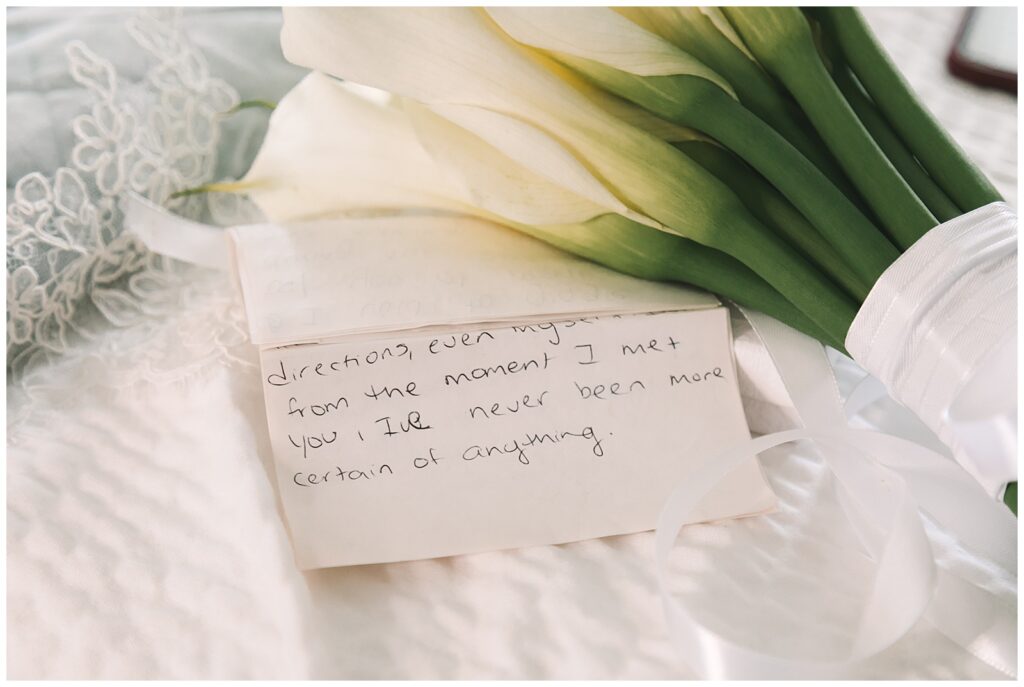 directions, even myself
from the moment I met
you, I've never been more
certain of anything.